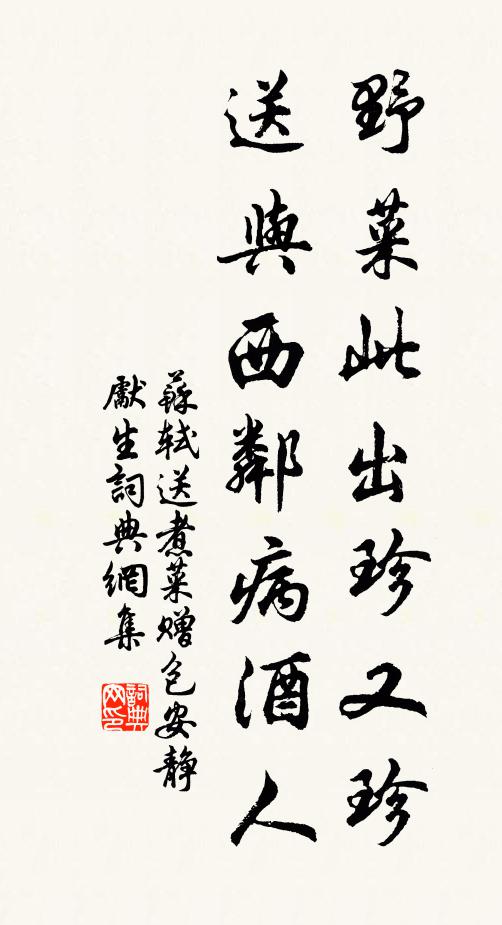 野菜此出珍又珍
送與西鄰病酒人
蘇轼送煮菜赠包安静
獻生詞典網集
詞典网印